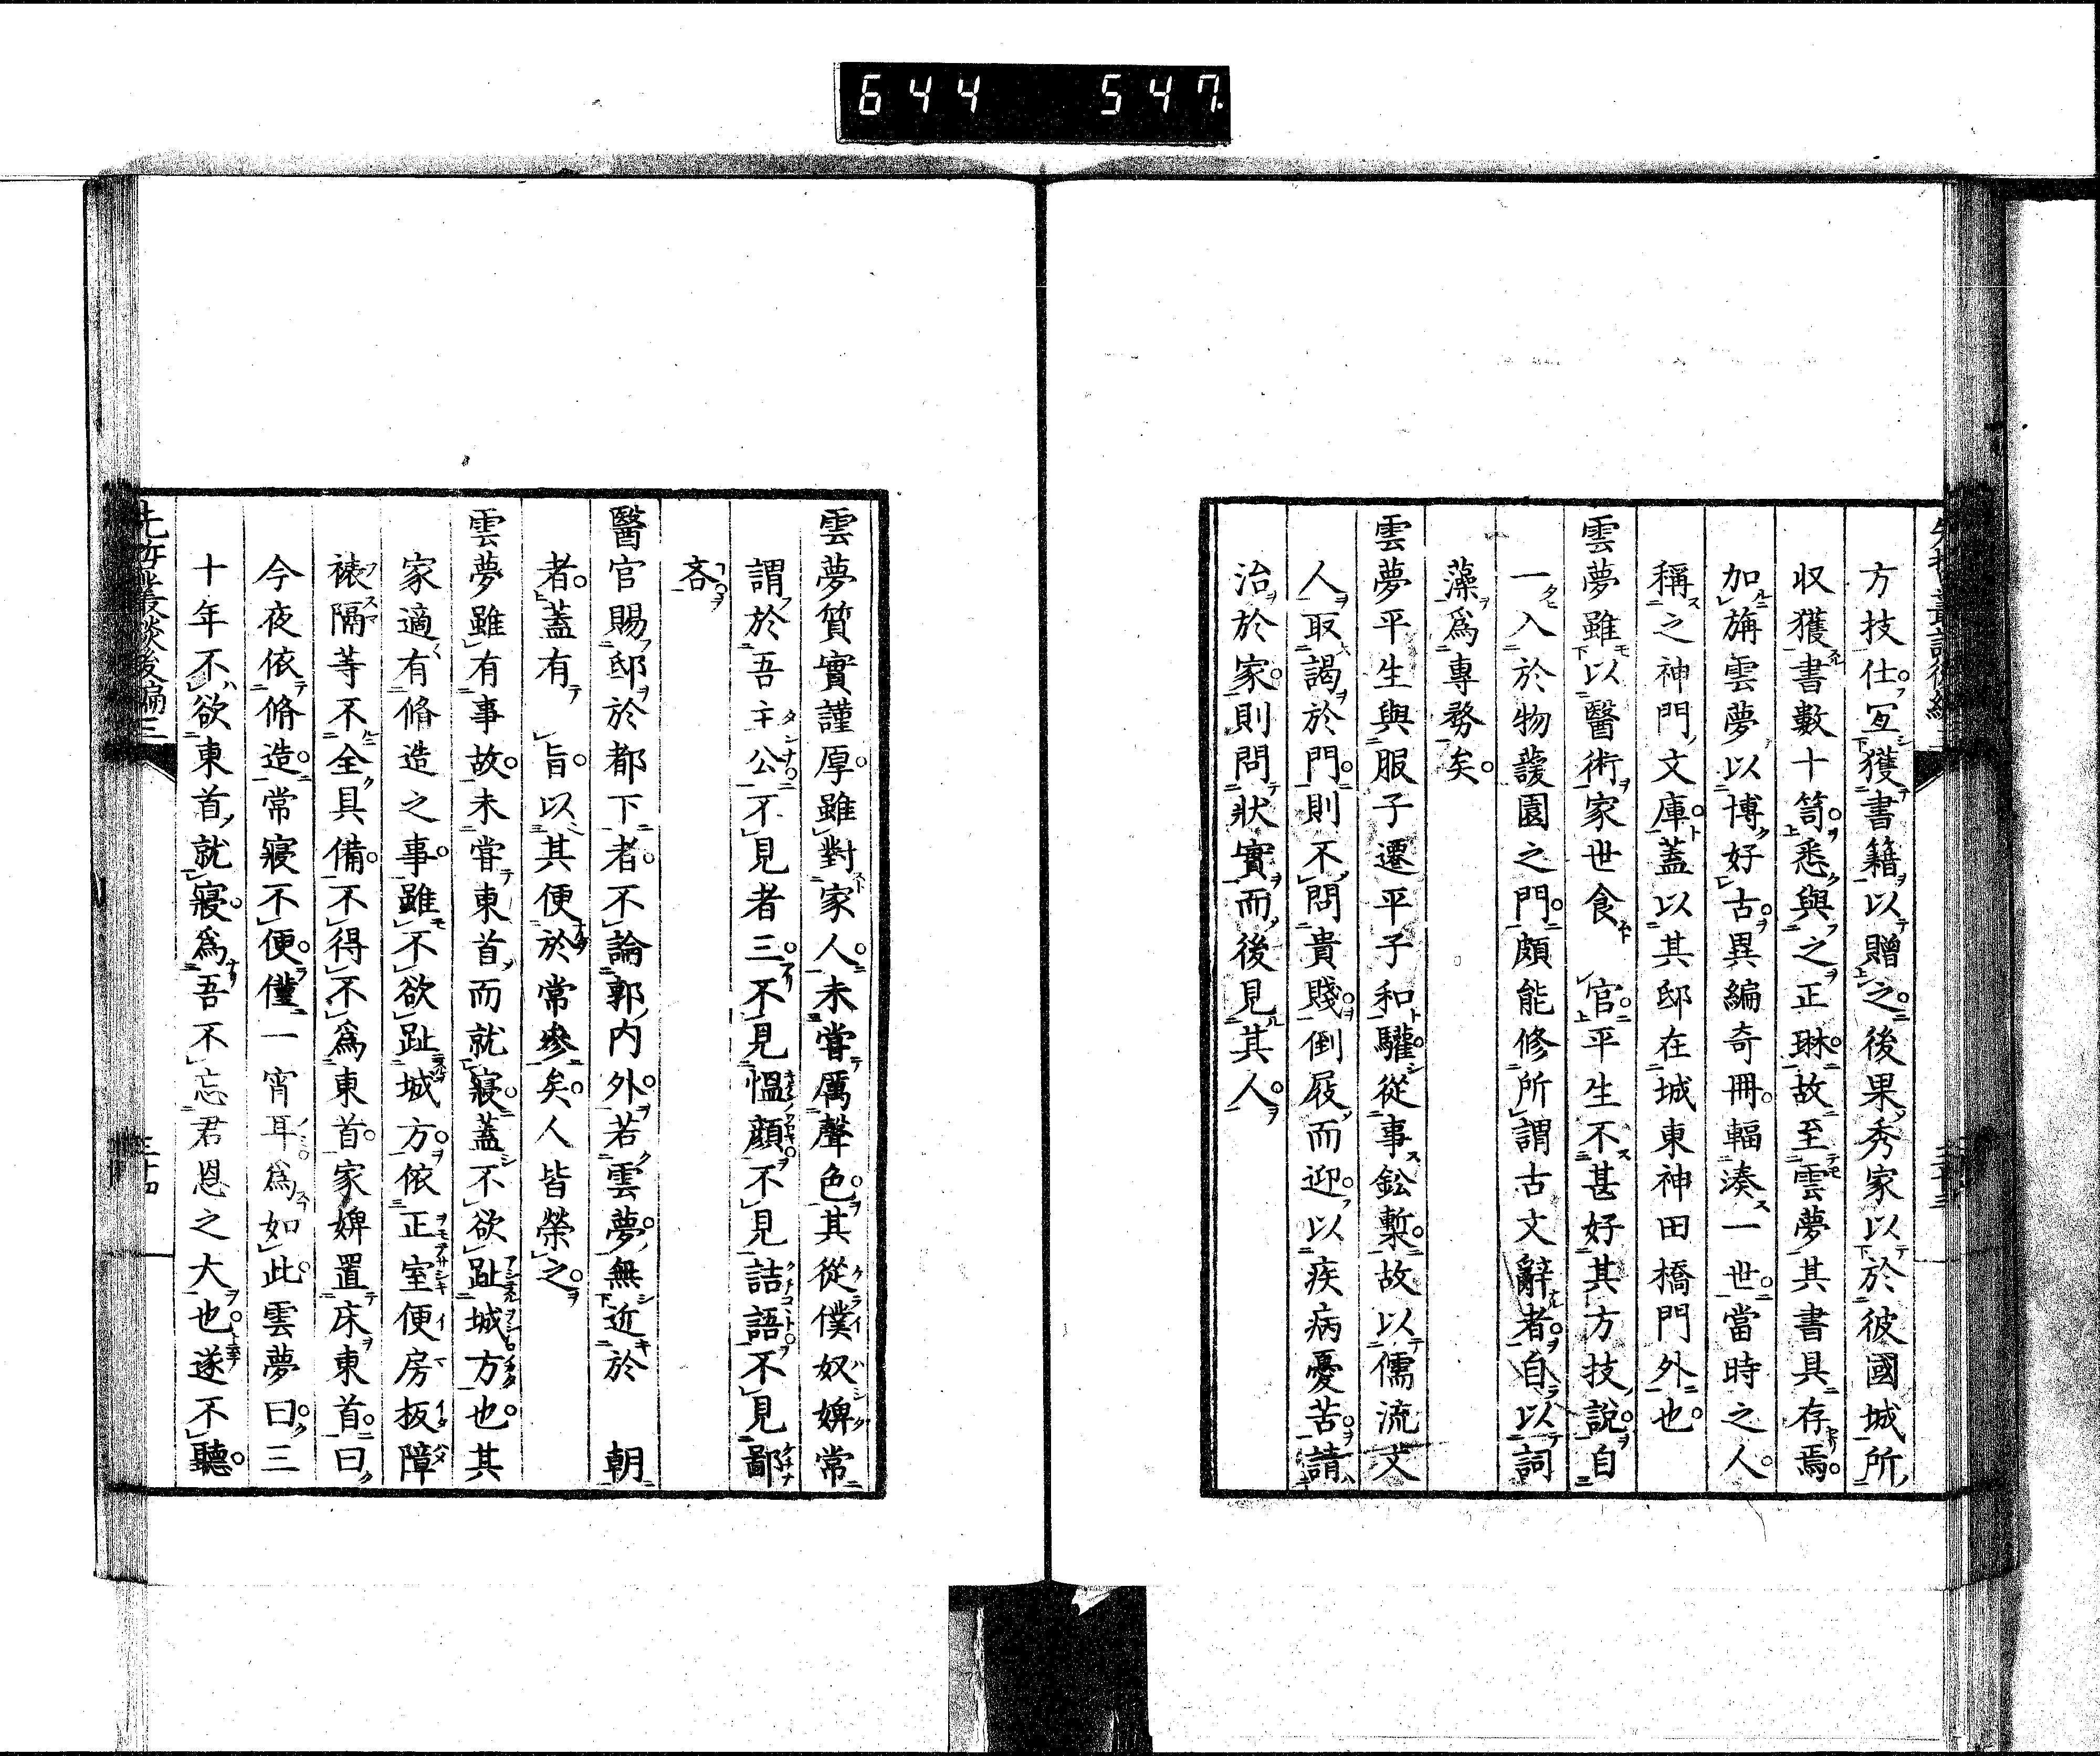 644 547
方技仕。宜獲書籍以贈之。後果秀家以於彼國城所
収獲書數十笥。悉與之正琳。故至雲夢其書具存焉。
加旃雲夢以博好古。異編奇冊。輻湊一世。當時之人。
稱之神門文庫。蓋以其邸在城東神田橋門外也。
雲夢雖以醫術家世食 官。平生不甚好其方技說。自
一入於物護園之門。頗能修所謂古文辭者。自以詞
藻爲專務矣。
雲夢平生與服子遷平子和驩。從事鉛槧。故以儒流文
人取謁於門。則不問貴賤。倒屐而迎。以疾病憂苦。請
治於家。則問狀實而後見其人。
雲夢質實謹厚。雖對家人。未嘗厲聲色。其從僕奴婢常
謂於吾主公。不見者三。不見慍顔。不見詰語。不見鄙
吝。
醫官賜邸於都下者。不論郭内外。若雲夢。無近於 朝
者。蓋有 旨。以其便於常參矣。人皆榮之。
雲夢雖有事故。未嘗東首而就寢。蓋不欲趾城方也。其
家適有脩造之事。雖不欲趾城方。依正室便房扳障
襖隔等不全具備。不得不爲東首。家婢置床東首。曰
今夜依脩造。常寢不便。僅一宵耳。爲如此。雲夢曰。三
十年不欲東首就寢。爲吾不忘君恩之大也。遂不聽。
先哲叢談後編三
三十四